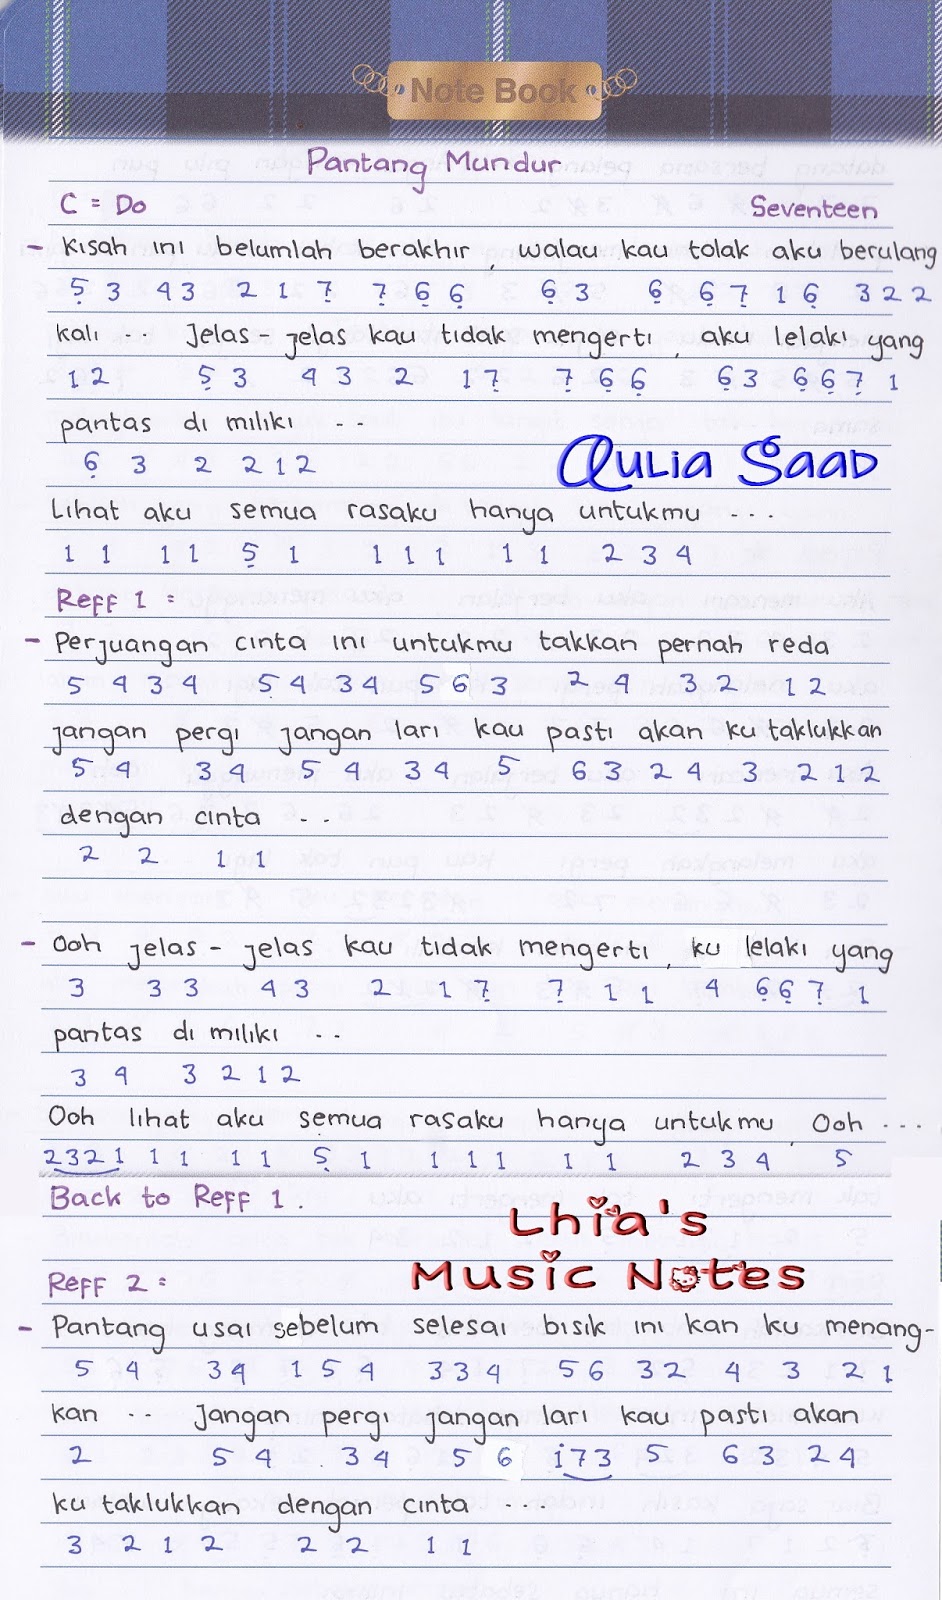 Note Book
Pantang Mundur
C = Do
Seventeen
- Kisah ini belumlah berakhir, walau kau tolak aku berulang
5̣ 3 4 3 2 1 7̣ 7̣ 6̣ 6̣ 6̣ 3 6̣ 6̣ 7̣ 1 6̣ 3 2 2
kali . . Jelas jelas kau tidak mengerti, aku lelaki yang
1 2 5̣ 3 4 3 2 1 7̣ 7̣ 6̣ 6̣ 6̣ 3 6̣ 6̣ 7̣ 1
pantas di miliki . .
6̣ 3 2 2 1 2
Qulia Saad
Lihat aku semua rasaku hanya untukmu . . .
1 1 1 1 5̣ 1 1 1 1 1 1 2 3 4
Reff 1 :
- Perjuangan cinta ini untukmu takkan pernah reda
5 4 3 4 5 4 3 4 5 6 3 2 4 3 2 1 2
jangan pergi jangan lari kau pasti akan ku taklukkan
5 4 3 4 5 4 3 4 5 6 3 2 4 3 2 1 2
dengan cinta . . .
2 2 1 1
- Ooh jelas - jelas kau tidak mengerti, ku lelaki yang
3 3 3 4 3 2 1 7̣ 7̣ 1 1 4 6̣ 6̣ 7̣ 1
pantas di miliki . .
3 4 3 2 1 2
Ooh lihat aku semua rasaku hanya untukmu, Ooh . . .
2 3 2 1 1 1 1 1 5̣ 1 1 1 1 1 1 2 3 4 5
Back to Reff 1.
Lhia's
Music Notes
Reff 2 :
- Pantang usai sebelum selesai bisik ini kan ku menang-
5 4 3 4 1 5 4 3 3 4 5 6 3 2 4 3 2 1
kan . . Jangan pergi jangan lari kau pasti akan
2 5 4 3 4 5 6 i 7 3 5 6 3 2 4
ku taklukkan dengan cinta
3 2 1 2 2 2 1 1